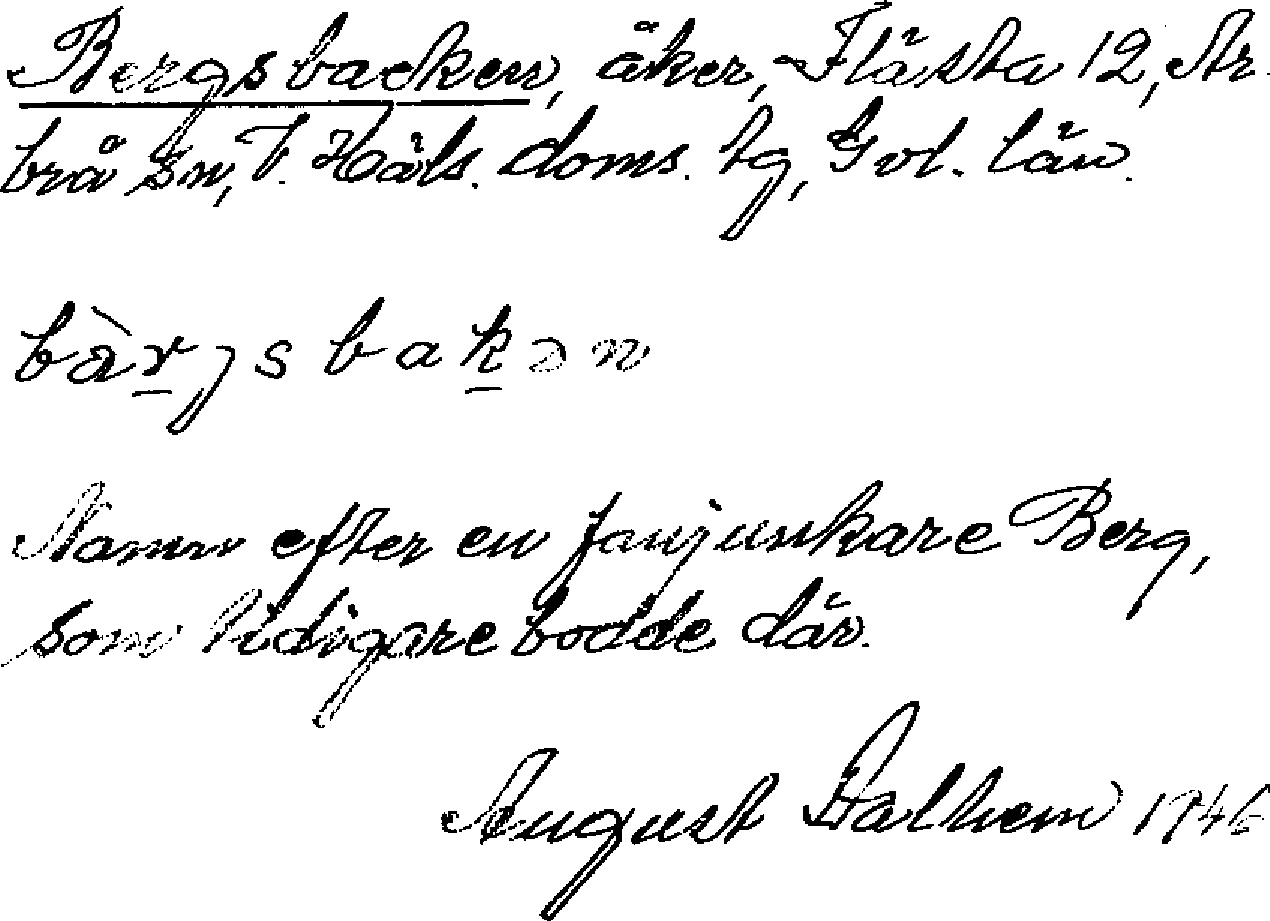 Bergsbacken, åker, Flästa 12, Ar-
brå sn, V. Häls. doms. tg, Gvl. län.
bàrɟsbakən
Namn efter en fanjunkare Berg,
som tidigare bodde där.
August Dalhem 1946